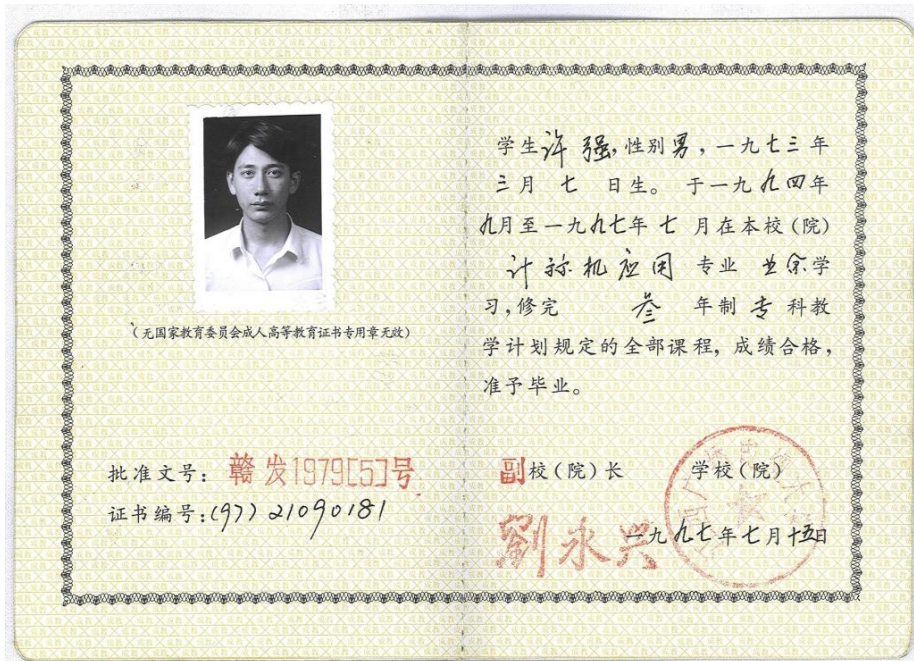 (无国家教育委员会成人高等教育证书专用章无效)
批准文号：赣发1979[5]号
证书编号：(97)21090181
学生许强，性别男，一九七三年
三月七日生。于一九九四年
九月至一九九七年七月在本校(院)
计算机应用专业业余学
习，修完叁年制专科教
学计划规定的全部课程，成绩合格，
准予毕业。
副校(院)长 学校(院)
劉永兴
一九九七年七月十五日